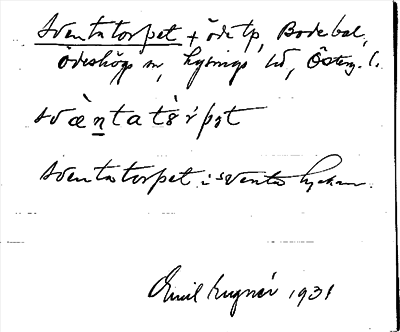 Sventatorpet + öde tp, Bodebal,
Ödeshögs sn, Lysings hd, Österg. l.
svæ̀ntatɜ̀rpət
Sventatorpet i Sventa lyckan.
Emil Lugnér 1931